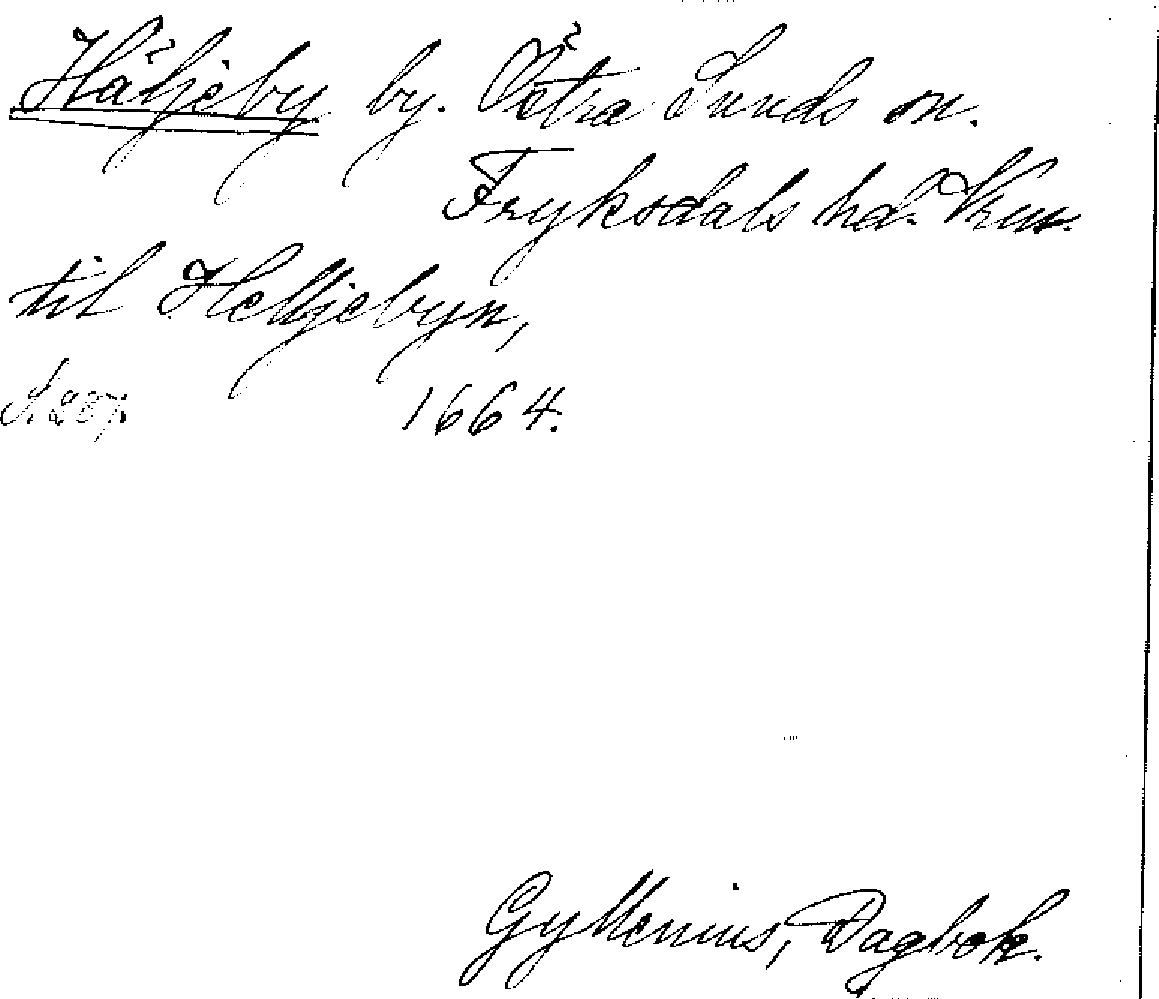 Häljeby by. Östra Sunds sn.
Fryksdals hd. Vrm.
til Helljebyn,
S. 287. 1664.
Gyllenius, Dagbok.